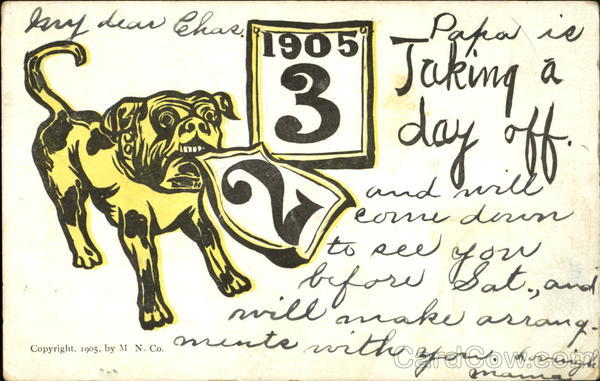 My dear Chas.
1905
3
2
Papa is
Taking a
day off.
and will
come down
to see you
before Sat., and
will make arrang-
ments with you.
Mama
Copyright, 1905, by M. N. Co.
CardCow.com